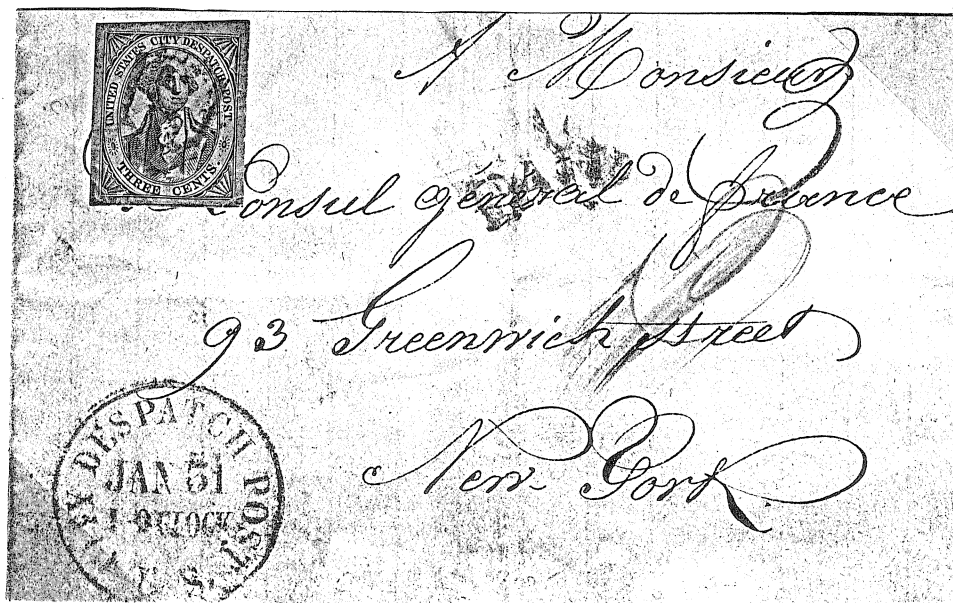 UNITED STATES CITY DESPATCH POST.
THREE CENTS.
A Monsieur
Consul général de france
PAID
93 Greenwich street
New-York
CITY DESPATCH POST
JAN 31
1 O'CLOCK
U. S.